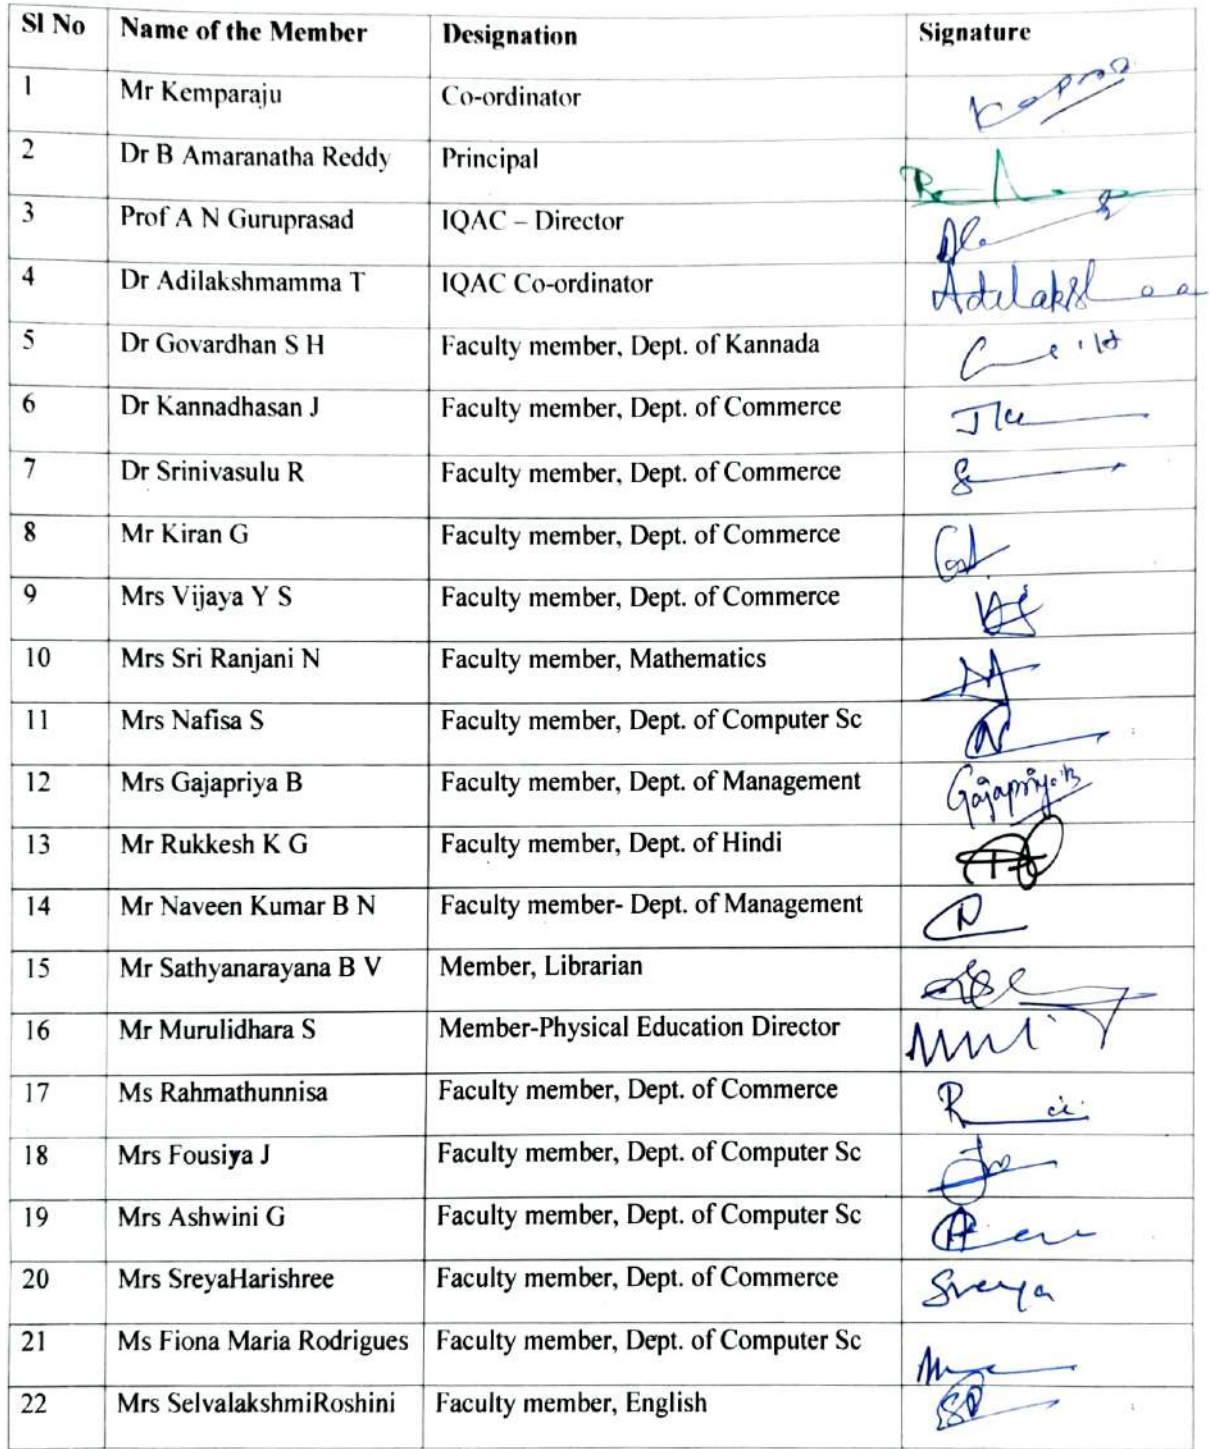 Sl No Name of the Member Designation Signature
1 Mr Kemparaju Co-ordinator
2 Dr B Amaranatha Reddy Principal
3 Prof A N Guruprasad IQAC – Director
4 Dr Adilakshmamma T IQAC Co-ordinator
5 Dr Govardhan S H Faculty member, Dept. of Kannada
6 Dr Kannadhasan J Faculty member, Dept. of Commerce
7 Dr Srinivasulu R Faculty member, Dept. of Commerce
8 Mr Kiran G Faculty member, Dept. of Commerce
9 Mrs Vijaya Y S Faculty member, Dept. of Commerce
10 Mrs Sri Ranjani N Faculty member, Mathematics
11 Mrs Nafisa S Faculty member, Dept. of Computer Sc
12 Mrs Gajapriya B Faculty member, Dept. of Management Gajapriya.B
13 Mr Rukkesh K G Faculty member, Dept. of Hindi
14 Mr Naveen Kumar B N Faculty member- Dept. of Management
15 Mr Sathyanarayana B V Member, Librarian
16 Mr Murulidhara S Member-Physical Education Director
17 Ms Rahmathunnisa Faculty member, Dept. of Commerce
18 Mrs Fousiya J Faculty member, Dept. of Computer Sc
19 Mrs Ashwini G Faculty member, Dept. of Computer Sc
20 Mrs SreyaHarishree Faculty member, Dept. of Commerce Sreya
21 Ms Fiona Maria Rodrigues Faculty member, Dept. of Computer Sc
22 Mrs SelvalakshmiRoshini Faculty member, English